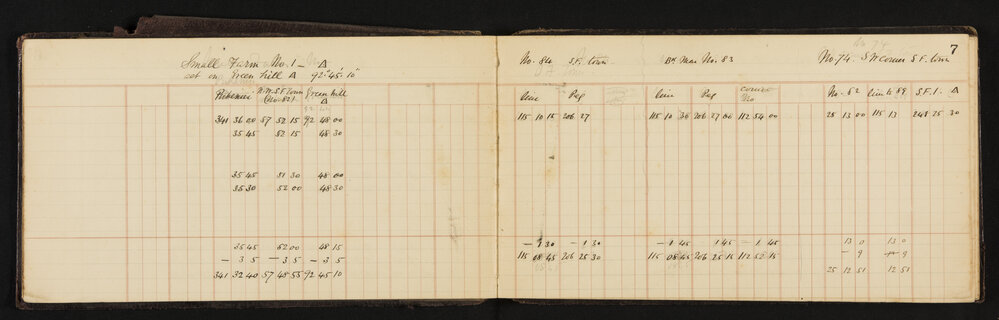 Small Farm No. 1 - Δ
set on green hill Δ 92° 45' 10"
N.W. S.F. town green hill
(No. 82) Δ
341 36 00 57 52 15 92 48 00
35 45 52 15 48 30
35 45 51 30 48 00
35 30 52 00 48 30
35 45 52 00 48 15
- 3 5 - 3 5 - 3 5
341 32 40 57 48 55 92 45 10
7
No. 84 S.F. town No. 83 No. 74. S.W. Corner S.F. town
line Peg line Peg corner No. 62 line to 69. S.F. 1. Δ
115 10 15 206 27 115 10 30 206 27 00 112 54 00 25 13 00 115 13 248 25 30
- 1 30 - 1 30 - 1 45 1 45 - 1 45 13 0 13 0
115 08 45 206 25 30 115 08 45 206 25 15 112 52 15 - 9 - 9
25 12 51 12 51